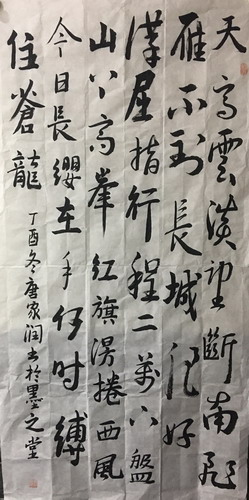 天高雲淡望斷南飛
雁不到長城非好
漢屈指行程二萬六盤
山上高峯紅旗漫捲西風
今日長纓在手何時縛
住蒼龍
丁酉冬唐家润书於墨之堂